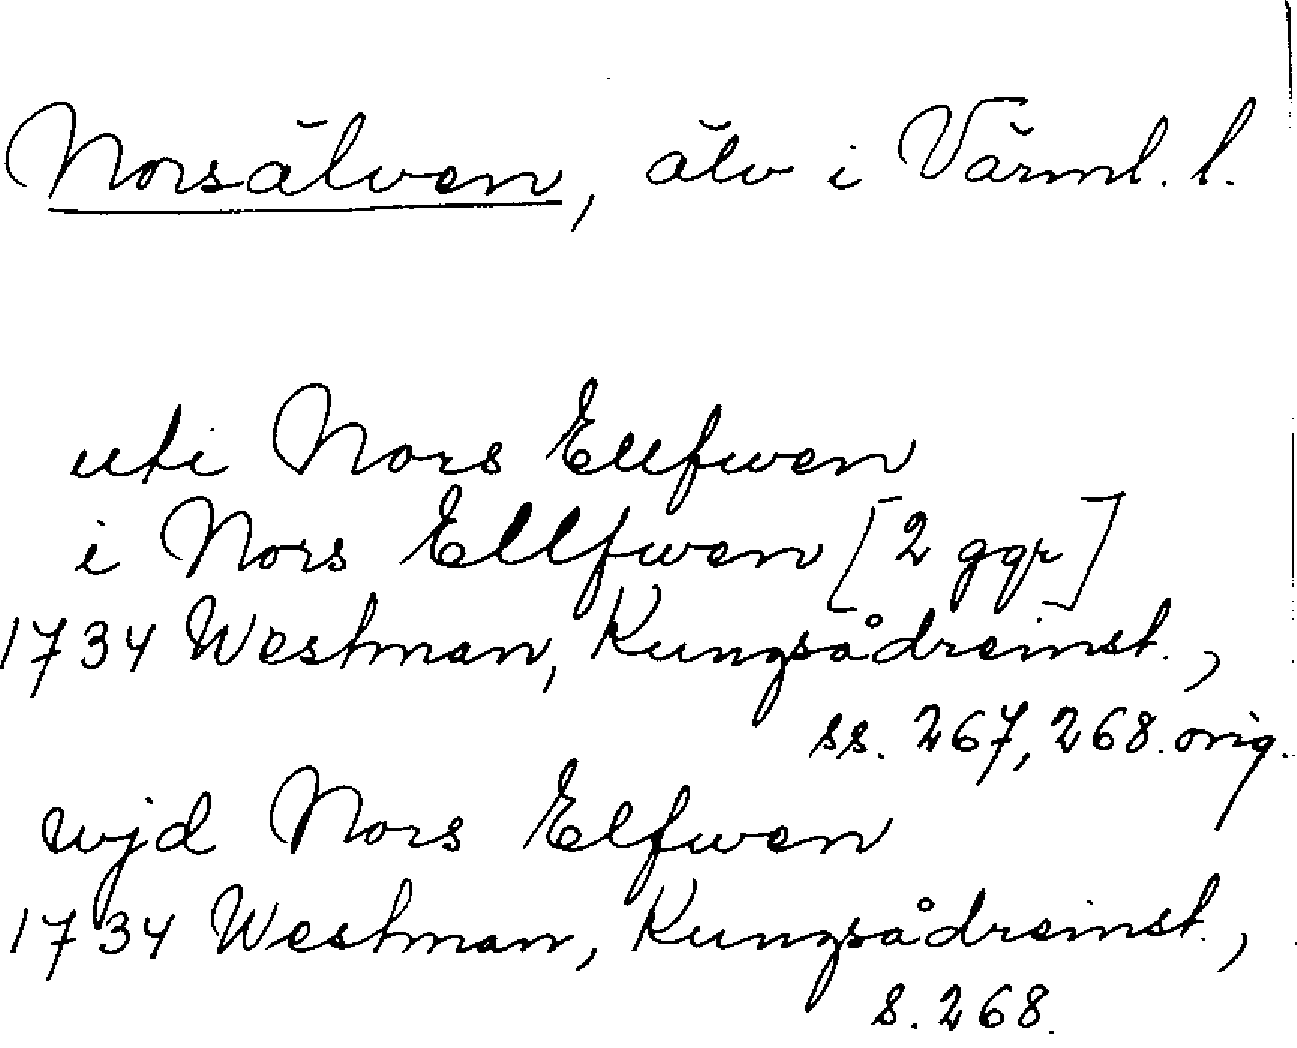 Norsälven, älv i Värml. l.
uti Nors Ellfwen
i Nors Ellfwen [2 ggr]
1734 Westman, Kungsådreinst.,
ss. 267, 268. orig.
wjd Nors Elfwen
1734 Westman, Kungsådreinst.,
s. 268.